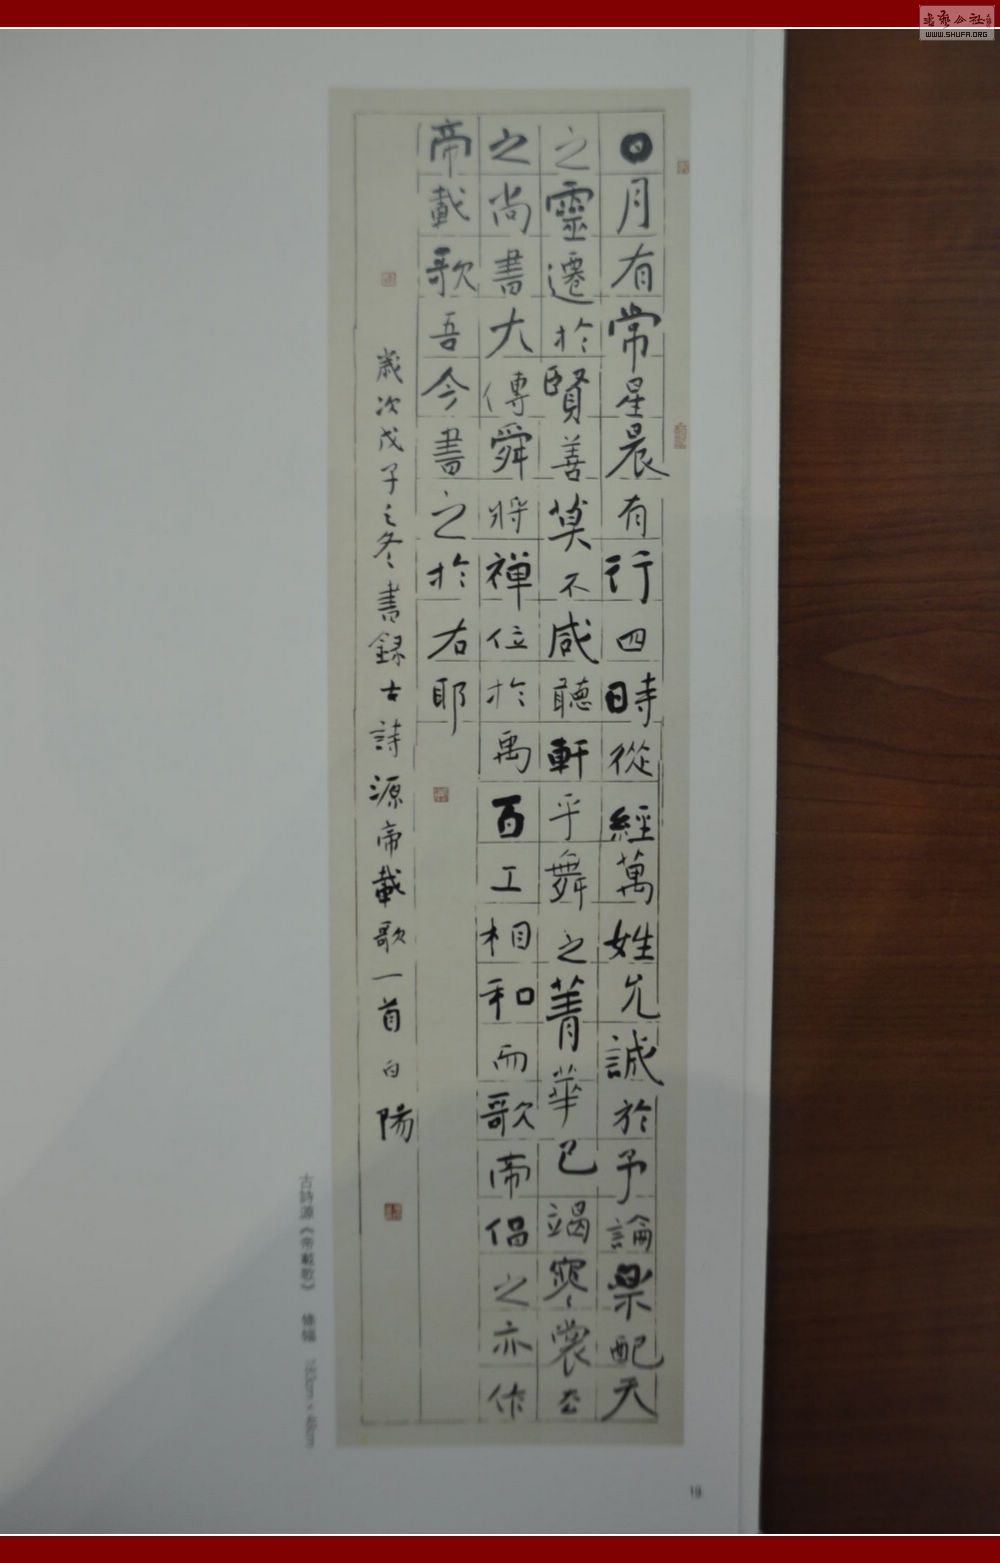 日月有常星晨有行四時從經萬姓允誠於予論樂配天
之靈遷於賢善莫不咸聽軒乎舞之菁華已竭褰裳去
之尚書大傳舜將禪位於禹百工相和而歌帝倡之亦作
帝載歌吾今書之於右耶
歲次戊子之冬書錄古詩源帝載歌一首白陽
古詩源《帝載歌》 條幅
WWW.SHUFA.ORG